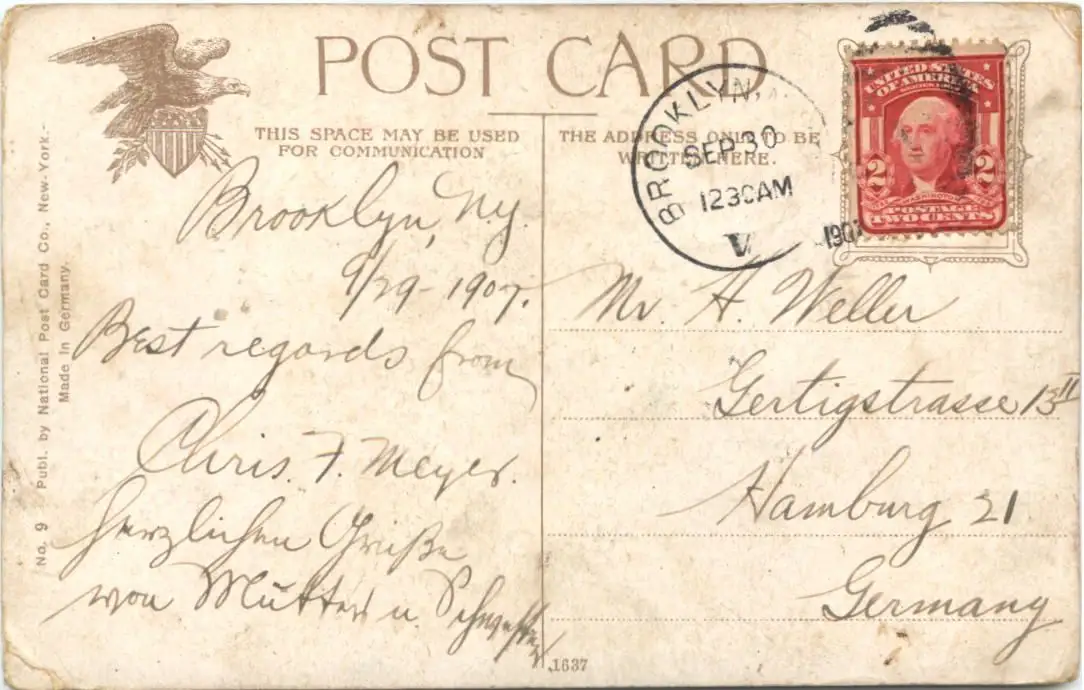 POST CARD
THIS SPACE MAY BE USED
FOR COMMUNICATION
THE ADDRESS ONLY TO BE
WRITTEN HERE.
BROOKLYN,
SEP 30
1230AM
V
1907
UNITED STATES
OF AMERICA
2 2
WASHINGTON
POSTAGE
TWO CENTS
Brooklyn, Ny.
9/29-1907.
Best regards from
Chris. F. Meyer.
Herzlichen Grüße
von Mutter u. Schwester
Mr. H. Weller
Gertigstrasse 13 II
Hamburg 21
Germany
No. 9 Publ. by National Post Card Co., New-York.-
Made In Germany.
1637